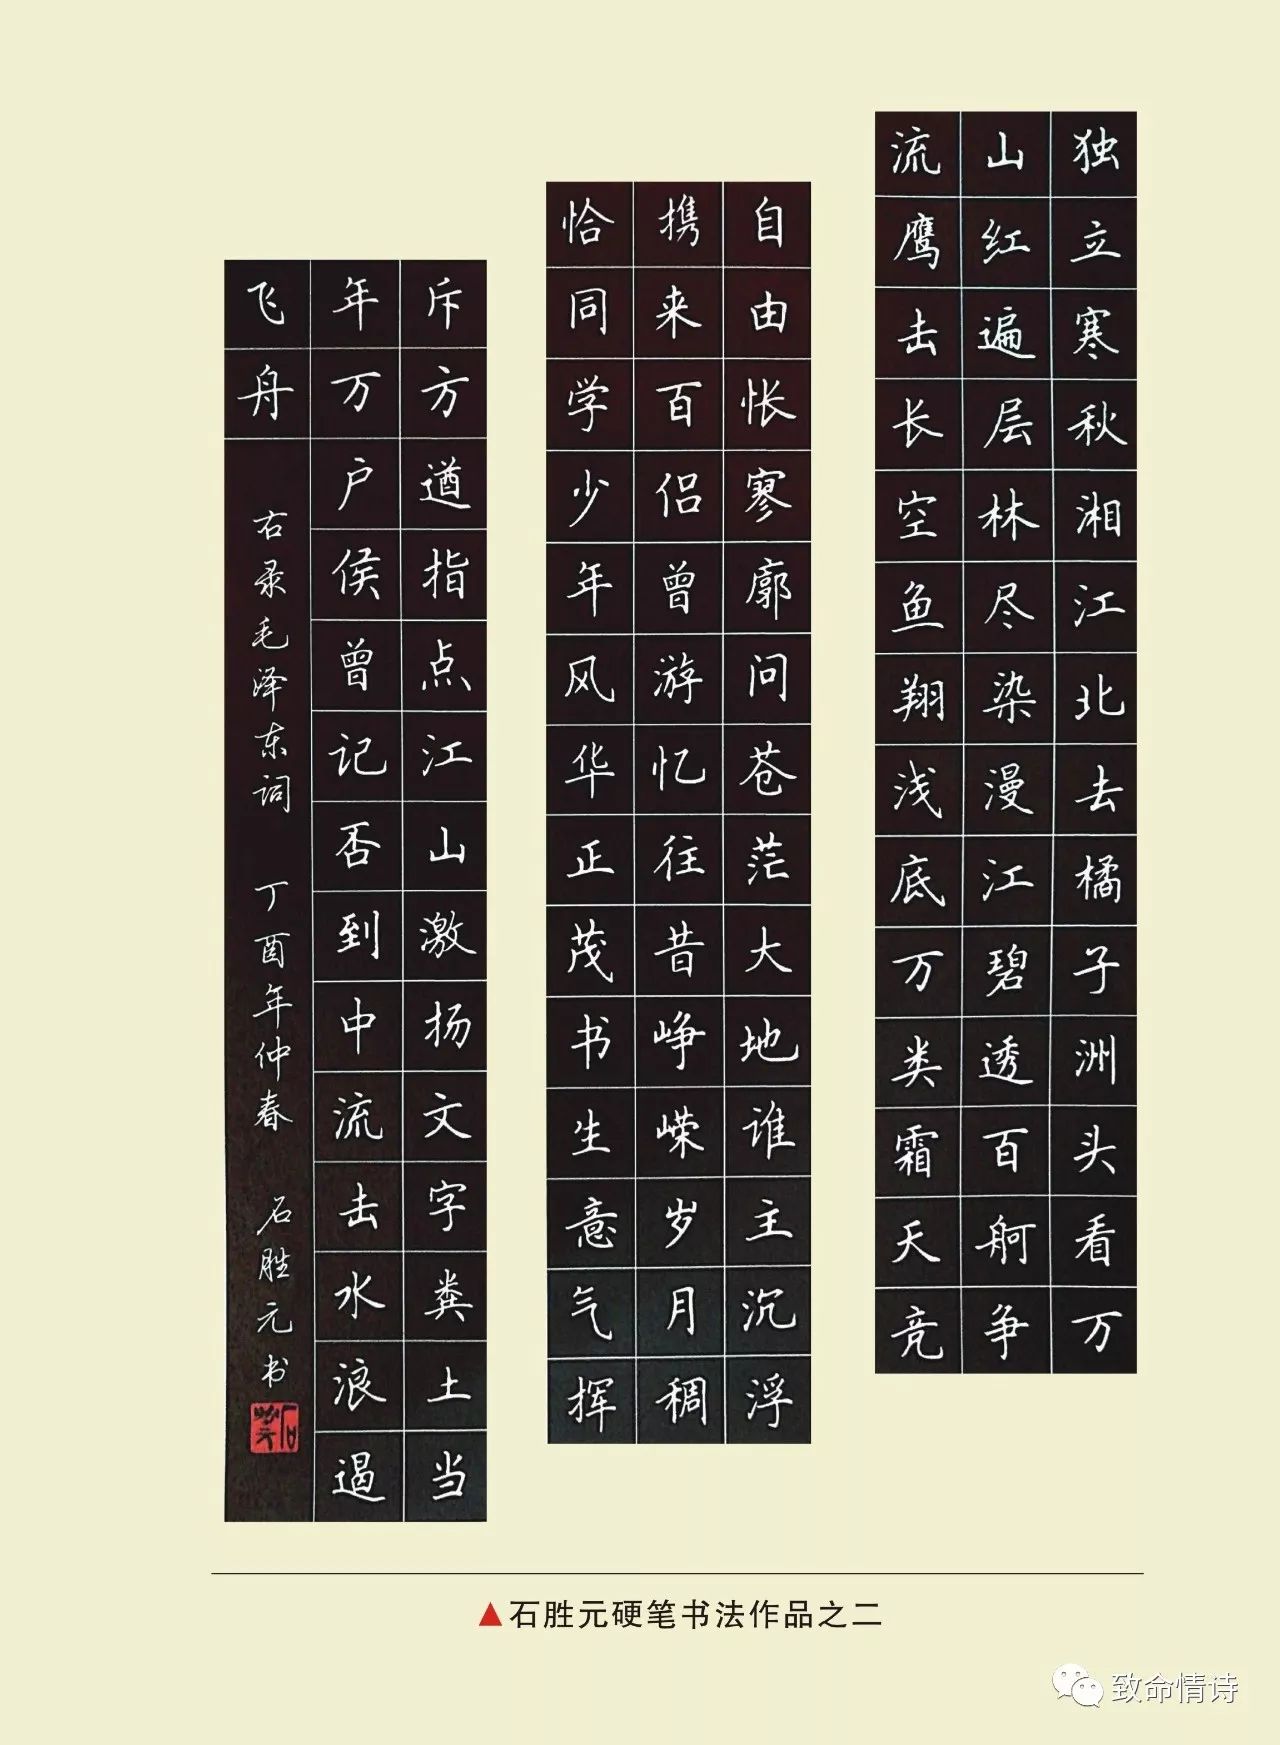 独立寒秋湘江北去橘子洲头看万
山红遍层林尽染漫江碧透百舸争
流鹰击长空鱼翔浅底万类霜天竞
自由怅寥廓问苍茫大地谁主沉浮
携来百侣曾游忆往昔峥嵘岁月稠
恰同学少年风华正茂书生意气挥
斥方遒指点江山激扬文字粪土当
年万户侯曾记否到中流击水浪遏
飞舟
右录毛泽东词 丁酉年仲春 石胜元书
▲石胜元硬笔书法作品之二
致命情诗